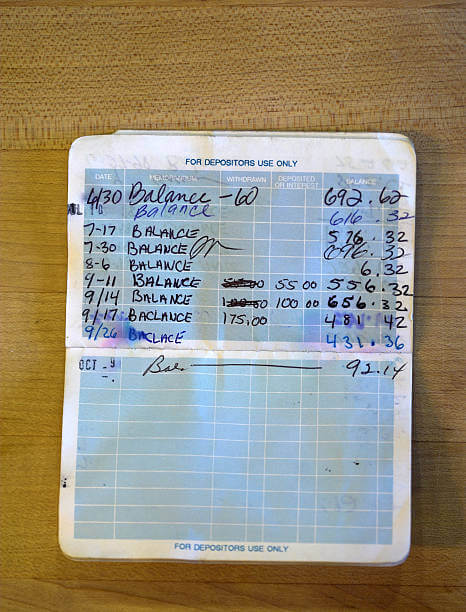 FOR DEPOSITORS USE ONLY
DATE MEMORANDUM WITHDRAWN DEPOSITED OR INTEREST BALANCE
6/30 Balance -60 692.62
Balance 616.32
7-17 BALANCE 576.32
7-30 BALANCE 696.32
8-6 BALANCE 6.32
9-11 BALANCE 55 00 556.32
9/14 BALANCE 100 00 656.32
9/17 BACLANCE 175,00 481 42
9/26 BACLACE 431.36
OCT -9 Bal. 92.14
FOR DEPOSITORS USE ONLY